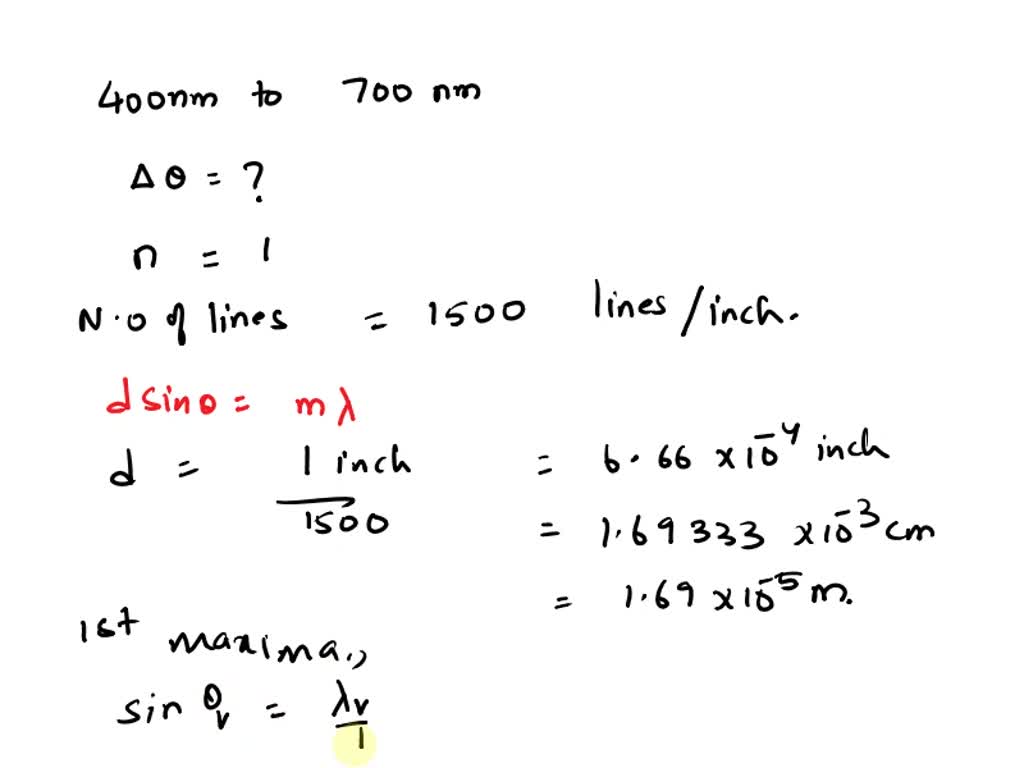 400nm to 700 nm
Δθ = ?
n = 1
N.o of lines = 1500 lines/inch.
d sinθ = mλ
d = 1 inch / 1500 = 6.66 ×10⁻⁴ inch
= 1.69333 ×10⁻³ cm
= 1.69 ×10⁻⁵ m.
1st maxima.,
sin θᵥ = λᵥ / 1